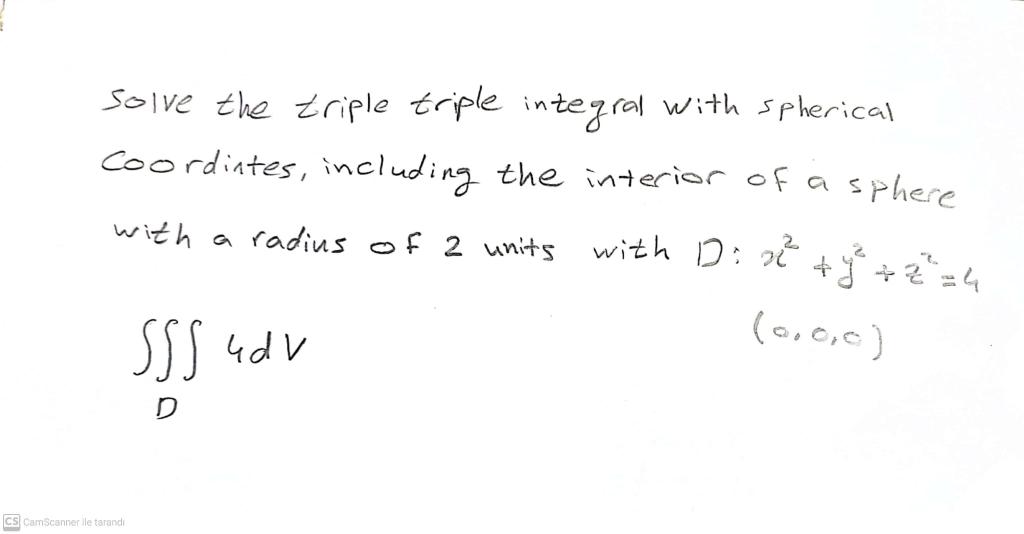 Solve the triple triple integral with spherical
Coordintes, including the interior of a sphere
with a radius of 2 units with D: x² + y² + z² = 4
(0,0,0)
∭ 4dV
D
CS CamScanner ile tarandı